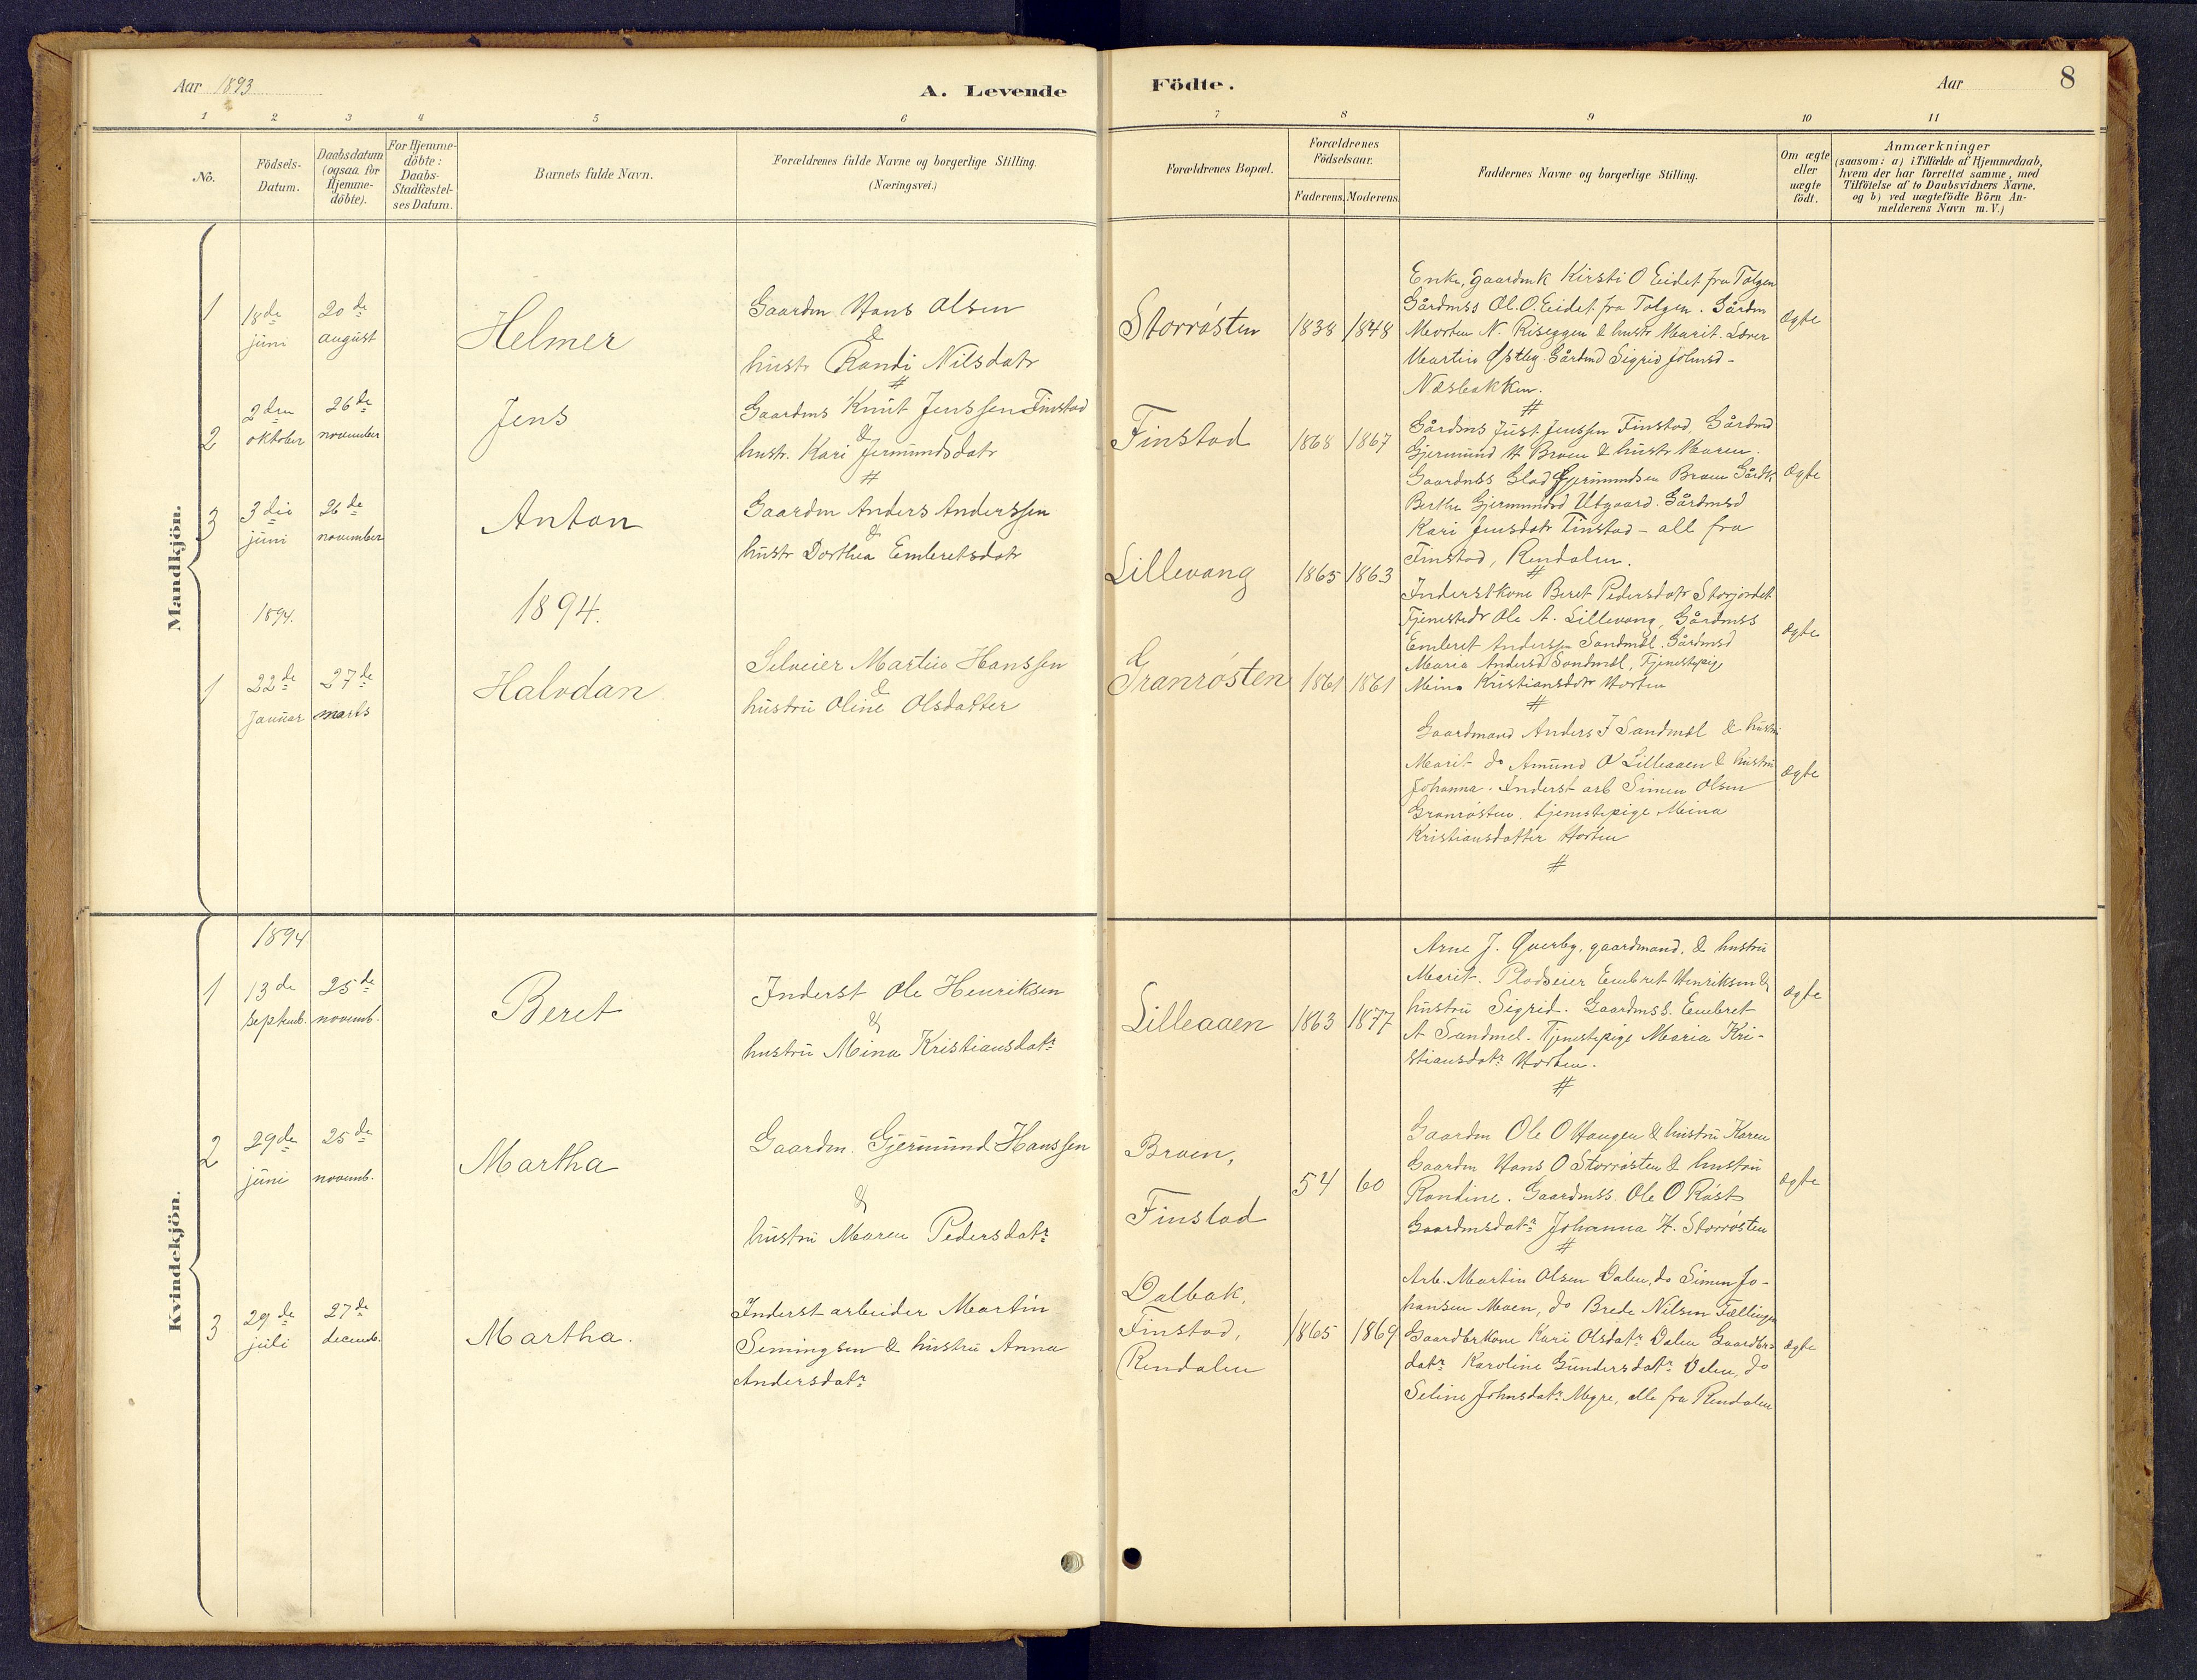 Aar 1893
A. Levende
Födte.
Aar
8
1 2 3 4 5 6
7 8 9 10 11
No.
Födsels-
Datum.
Daabsdatum
(ogsaa for
Hjemme-
döbte).
For Hjemme-
döbte:
Daabs-
Stadfæstel-
ses Datum.
Barnets fulde Navn.
Forældrenes fulde Navne og borgerlige Stilling.
(Næringsvei.)
Forældrenes Bopæl.
Forældrenes
Födselsaar.
Faderens.
Moderens.
Faddernes Navne og borgerlige Stilling.
Om ægte
eller
uægte
födt.
Anmærkninger
(saasom: a) i Tilfælde af Hjemmedaab,
hvem der har forrettet samme, med
Tilföielse af to Daabsvidners Navne.
og b) ved uægtefödte Börn An-
melderens Navn m.V.)
Mandkjön.
1
18de
juni
20de
august
Helmer
Gaardm Hans Olsen
&
hustr Randi Nilsdatr
#
Storrösten
1838
1848
Enke, gaardmk Kirsti O Eidet fra Tolgen
Gårdmss Ol. O. Eidet fra Tolgen. Gårdm
Morten N. Riseggen & hustr Marit. Lærer
Martin Østby. Gårdmd Sigrid Johnsd-
Næsbakken.
#
Ægte
2
2den
oktober
26de
november
Jens
Gaardms Knut Jenssen Finstad
&
hustr. Kari Jermundsdatr
#
Finstad
1868
1867
Gårdms Just Jenssen Finstad, Gårdmd
Gjermund H Braen & hustr Maren.
Gaardmss Glad Gjermundsen Braen Gårdk
Berthe Gjermundsd Utgaard. Gårdmsd
Kari Jensdatr Finstad - all fra
Finstad, Rendalen.
#
Ægte
3
3die
juni
26de
november
Anton
Gaardm Anders Anderssen
&
hustr Dorthea Emberetsdatr
Lillevang
1865
1863
Inderstkone Beret Pedersdatr Storjordet
Tjenestedr Ole A. Lillevang, Gårdmss
Emberet Anderssen Sandmæl. Gårdmsd
Maria Andersd Sandmæl, Tjenestepige
Mina Kristiansdatr Horten
#
Ægte
1894.
1894.
1
22de
Januar
27de
marts
Halvdan
Selveier Martin Hanssen
&
hustru Oline Olsdatter
Granrösten
1861
1861
Gaardmand Anders J Sandmæl & hustru
Marit do Amund O Lilleaaen & hustru
Johanna. Inderst arb Simen Olsen
Granrösten. tjenestepige Meina
Kristiansdatter Horten
#
Ægte
Kvindekjön.
1894
1
13de
septemb.
25de
novemb.
Beret
Inderst Ole Henriksen
&
hustru Mina Kristiansdatr
Lilleaaen
1863
1877
Arne J. Øverby, gaardmand, & hustru
Marit. Pladseier Embret Henriksen &
hustru Sigrid. Gaardmss. Embret
A Sandmel. Tjenestepige Maria Kri-
stiansdatr Horten.
#
ægte
2
29de
juni
25de
novemb.
Martha
Gaardm. Gjermund Hanssen
&
hustru Maren Pedersdatr
Braen,
Finstad
54
60
Gaardm Ole O Haugen & hustru Karen
Gaardm Hans O Storrösten & hustru
Randine. Gaardmss. Ole O Röst
Gaardmsdatr Johanna H. Storrösten
#
ægte
3
29de
juli
27de
decemb.
Martha.
Inderst arbeider Martin
Semingsen & hustru Anna
Andersdatr
Dalbak,
Finstad,
Rendalen
1865
1869
Arb. Martin Olsen Dalen, do Simen Jo-
hansen Moen, do Brede Nilsen Fællingen
Gaardbrkone Kari Olsdatr Dalen Gaardbr-
datr Karoline Gundersdatr Dalen, do
Seline Johnsdatr Mygre, alle fra Rendalen
ægte